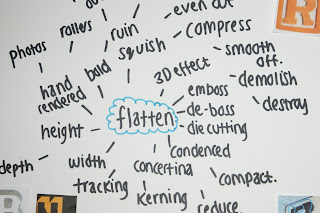 even out
rollers
ruin
compress
photos
squish
smooth
off.
bald
3D effect
demolish
hand
rendered
emboss
destroy
de-boss
flatten
height
die cutting
condenced
width
concertina
compact.
depth
tracking
kerning
reduce.
R